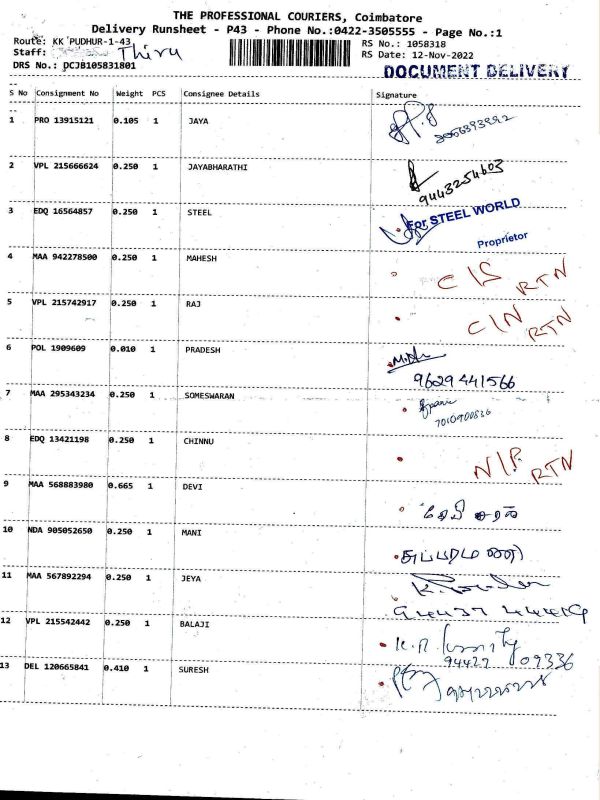 THE PROFESSIONAL COURIERS, Coimbatore
Delivery Runsheet - P43 - Phone No.:0422-3505555 - Page No.:1
Route: KK PUDHUR-1-43 RS No.: 1058318
Staff: Thiru RS Date: 12-Nov-2022
DRS No.: DCJB105831801 DOCUMENT DELIVERY
S No Consignment No Weight PCS Consignee Details Signature
1 PRO 13915121 0.105 1 JAYA
2 VPL 215666624 0.250 1 JAYABHARATHI 9443254603
3 EDQ 16564857 0.250 1 STEEL For STEEL WORLD
Proprietor
4 MAA 942278500 0.250 1 MAHESH RTN
5 VPL 215742917 0.250 1 RAJ C/N RTN
6 POL 1909609 0.010 1 PRADESH
9629441566
7 MAA 295343234 0.250 1 SOMESWARAN
7010900836
8 EDQ 13421198 0.250 1 CHINNU N/P RTN
9 MAA 568883980 0.665 1 DEVI தேவி
10 NDA 905052650 0.250 1 MANI
11 MAA 567892294 0.250 1 JEYA
12 VPL 215542442 0.250 1 BALAJI
94427 09336
13 DEL 120665841 0.410 1 SURESH